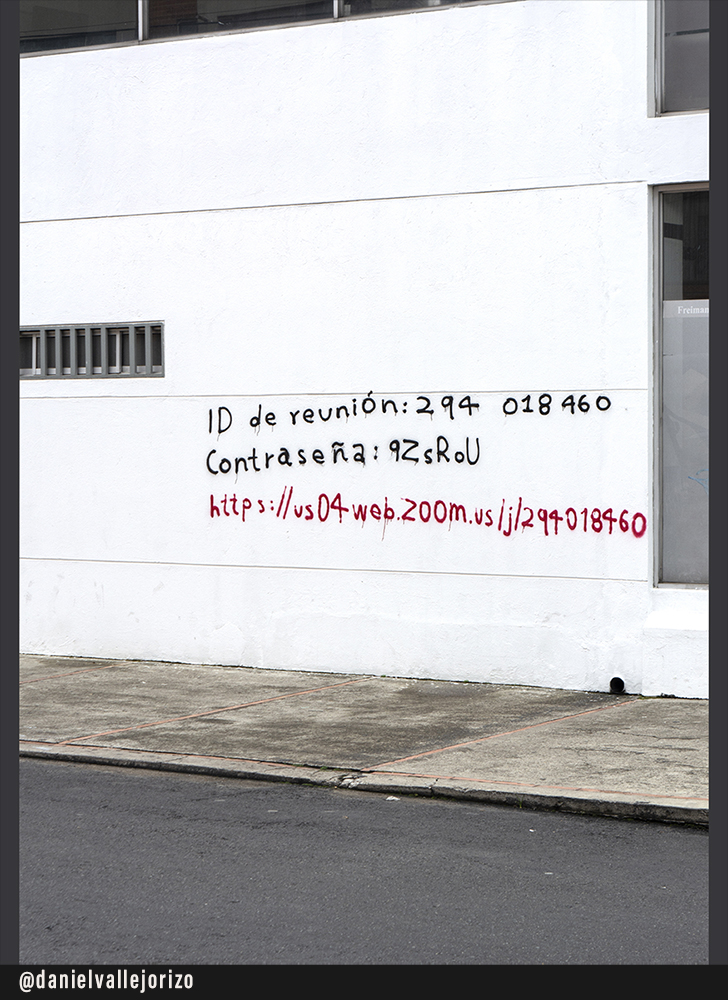 Freiman
ID de reunión: 294 018 460
Contraseña: 9ZsRoU
https://us04web.zoom.us/j/294018460
@danielvallejorizo